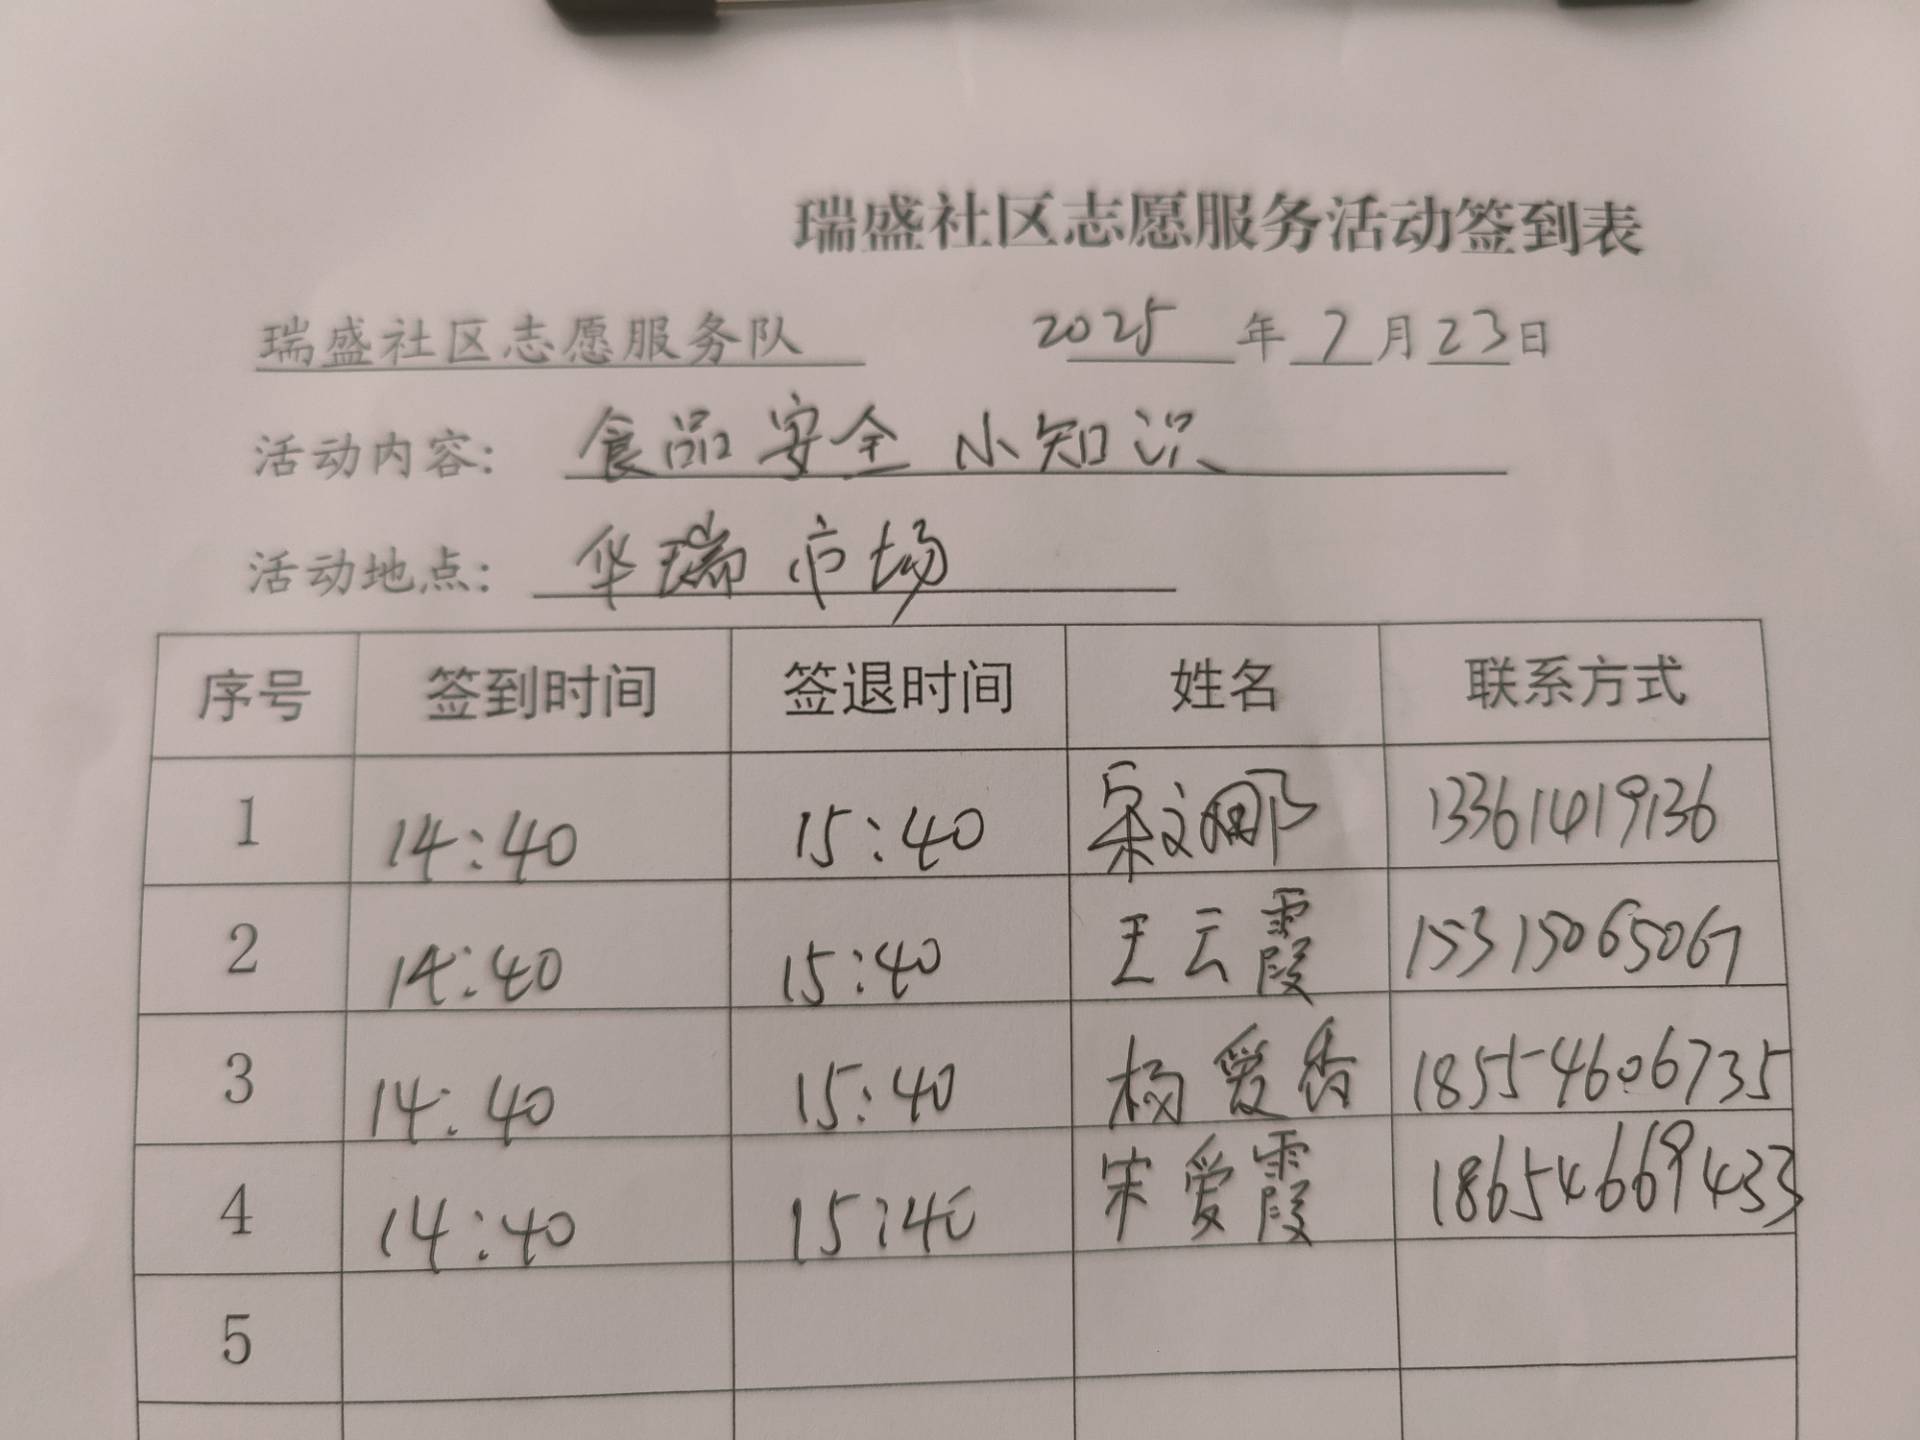 瑞盛社区志愿服务活动签到表
瑞盛社区志愿服务队 2025 年 7 月 23 日
活动内容: 食品安全小知识
活动地点: 华瑞市场
序号 签到时间 签退时间 姓名 联系方式
1 14:40 15:40 宋文娜 13361419136
2 14:40 15:40 王云霞 15315065067
3 14:40 15:40 杨爱香 18554606735
4 14:40 15:40 宋爱霞 18654669433
5